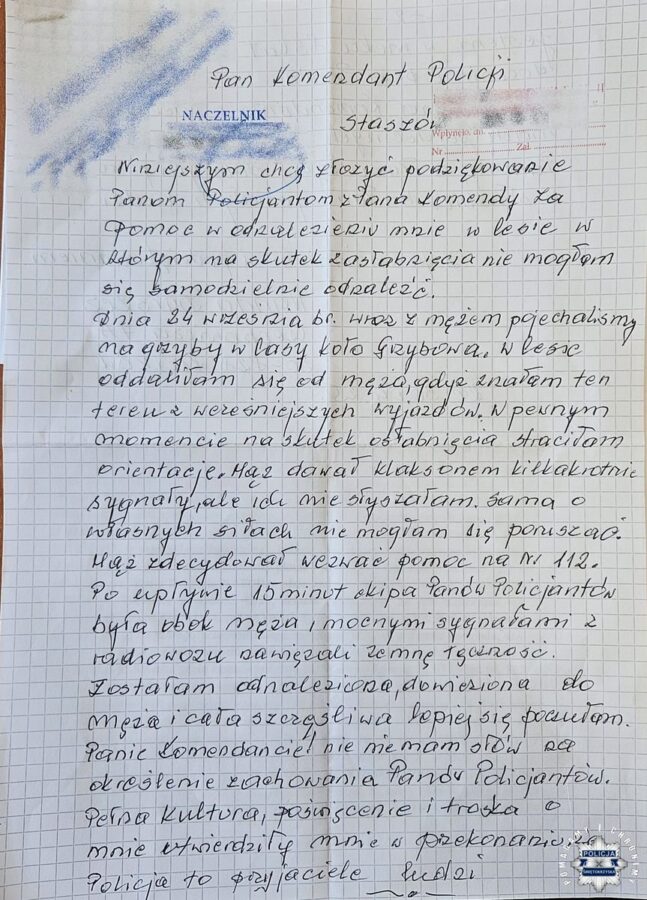 Pan Komendant Policji
NACZELNIK
Staszów
Wpłynęło, dn.
Nr Zał.
Niniejszym chcę złożyć podziękowanie
Panom Policjantom z Pana Komendy za
pomoc w odnalezieniu mnie w lesie w
którym na skutek zasłabnięcia nie mogłam
się samodzielnie odnaleźć.
Dnia 24 września br. wraz z mężem pojechaliśmy
na grzyby w lasy koło Grzybowa. W lesie
oddaliłam się od męża, gdyż znałam ten
teren z wcześniejszych wyjazdów. W pewnym
momencie na skutek osłabnięcia straciłam
orientację. Mąż dawał klaksonem kilkakrotnie
sygnały, ale ich nie słyszałam. Sama o
własnych siłach nie mogłam się poruszać.
Mąż zdecydował wezwać pomoc na Nr 112.
Po upływie 15 minut ekipa Panów Policjantów
była obok męża i mocnymi sygnałami z
radiowozu nawiązali ze mną łączność.
Zostałam odnaleziona, dowieziona do
męża i cała szczęśliwa lepiej się poczułam.
Panie Komendancie! nie mam słów na
określenie zachowania Panów Policjantów.
Pełna Kultura, poświęcenie i troska o
mnie utwierdziły mnie w przekonaniu, że
Policja to przyjaciele ludzi
POMAGAMY I CHRONIMY
POLICJA
ŚWIĘTOKRZYSKA